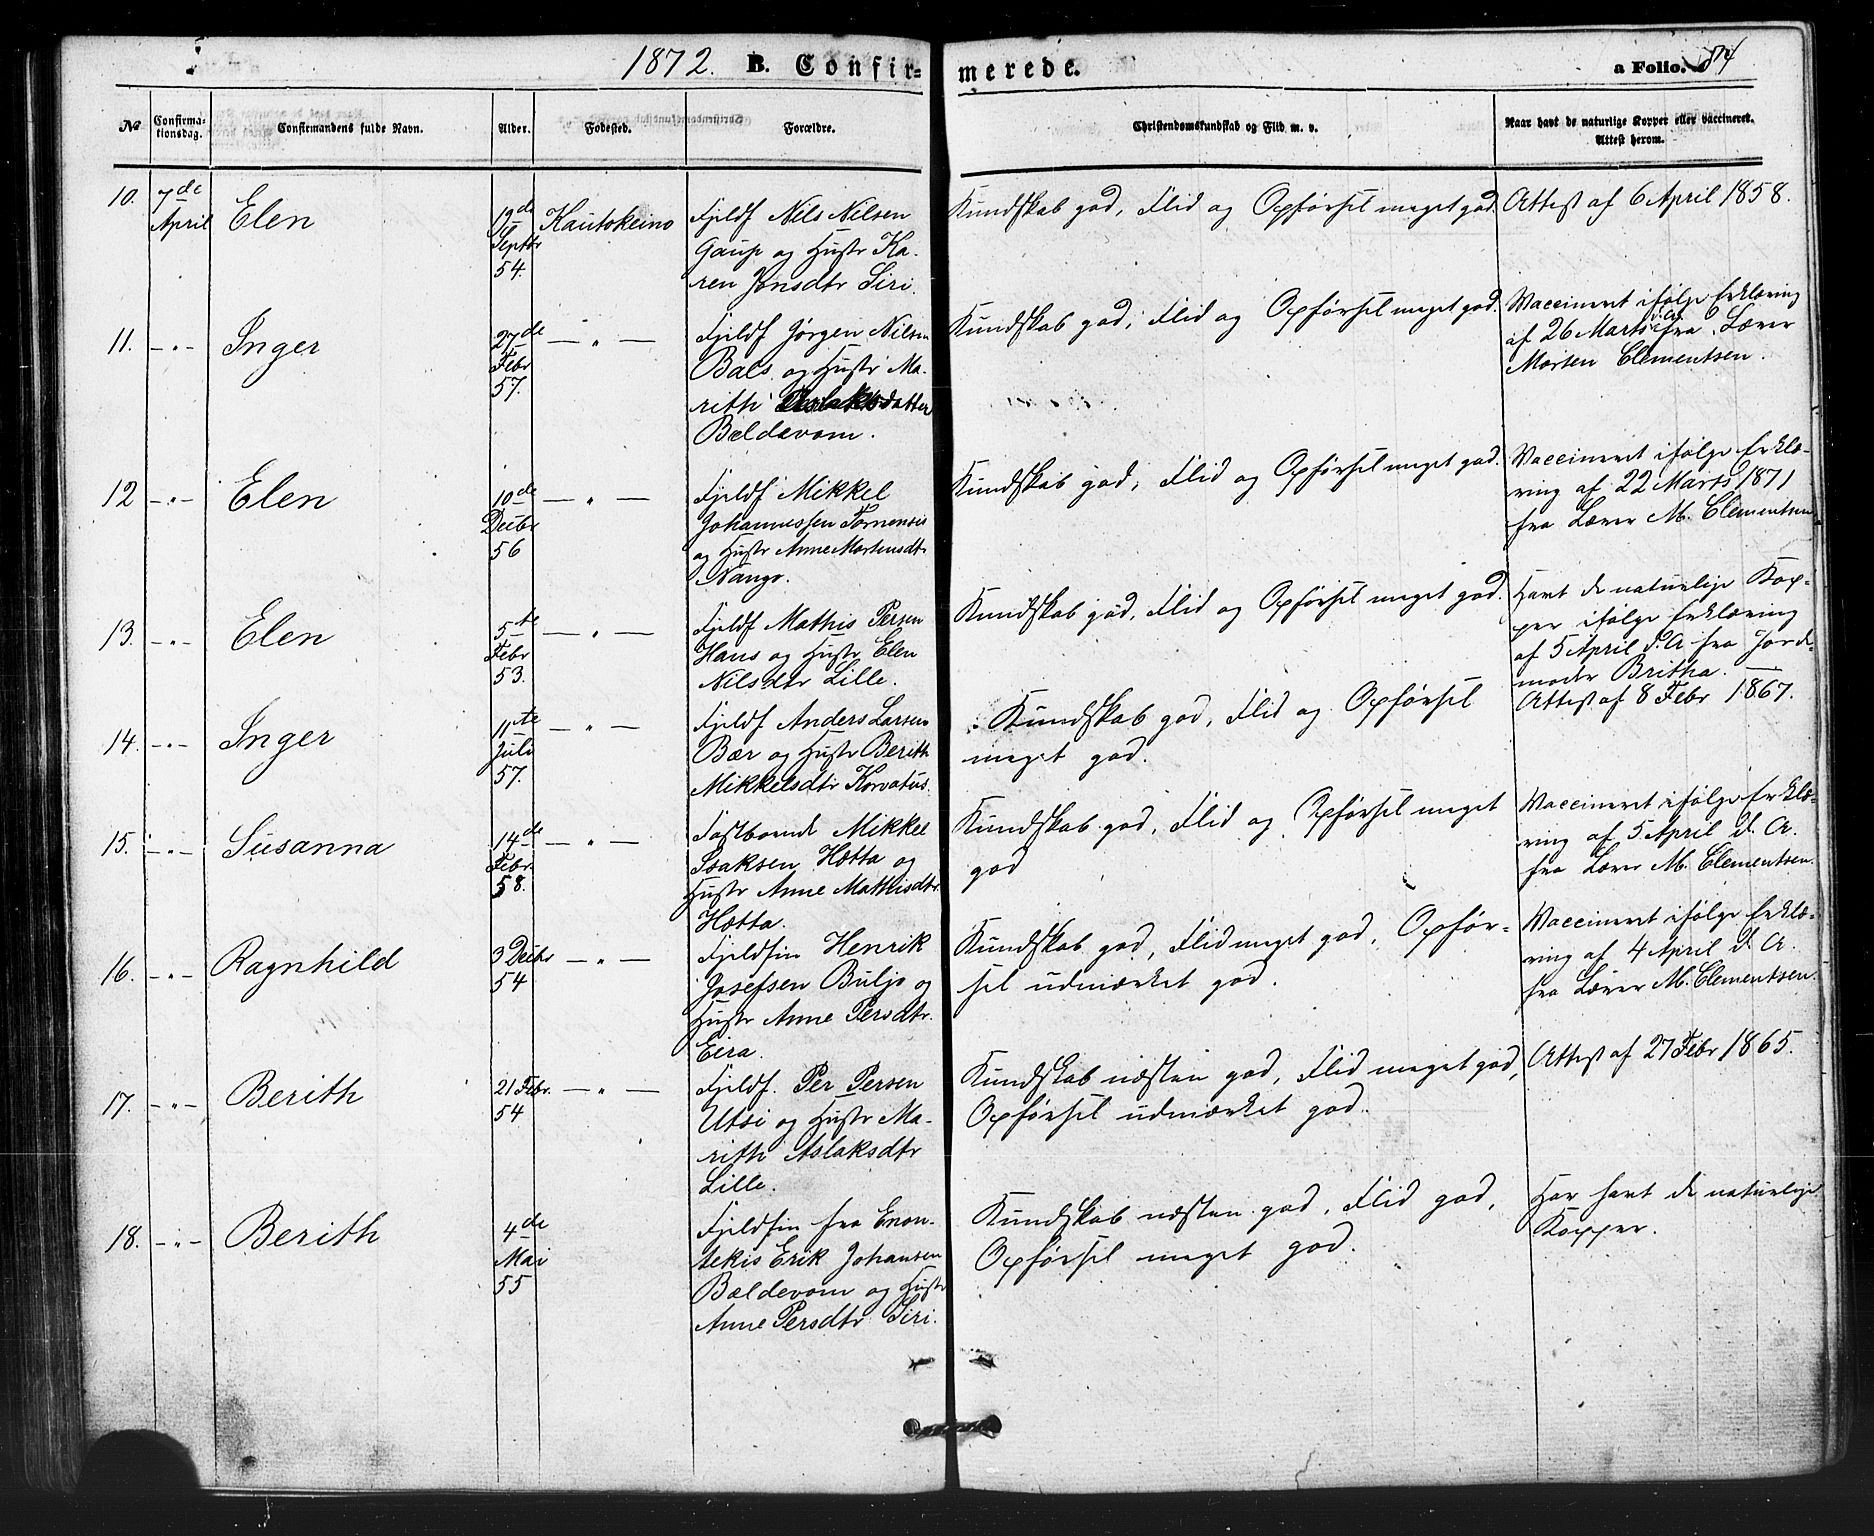 1872. B. Confirmerede. a Folio. 84
No Confirmationsdag. Confirmandens fulde Navn. Alder. Fødested. Forældre. Christendomskundskab og Flid m. v. Naar havt de naturlige Kopper eller vaccineret. Attest herom.
10. 7de April Elen 12de Septbr 54. Kautokeino
Fjeldf Nils Nilsen
Gaup og Hustr Ka-
ren Jonsdtr Siri.
Kundskab god, Flid og Opførsel meget god.
Attest af 6 April 1858.
11. —"— Inger 27de Febr 57. —"—
Fjeldf Jørgen Nilsen
Bals og Hustr Ma-
rith Aslaksdatter
Bældevom.
Kundskab god, Flid og Opførsel meget god.
Vaccineret ifølge Erklæring
af 26 Marts fra Lærer
Morten Clementsen.
12 —"— Elen 10de Decbr 56 —"—
Fjeldf Mikkel
Johannessen Tornensis
og Hustr Anne Mortensdtr
Nango.
Kundskab god, Flid og Opførsel meget god.
Vaccineret ifølge Erklæ-
ring af 22 Marts 1871
fra Lærer M. Clementsen
13. —"— Elen 5te Febr 53. —"—
Fjeldf Mathis Persen
Hans og Hustr Elen
Nilsdtr Lille.
Kundskab god, Flid og Opførsel meget god.
Havt de naturlige Kop-
per ifølge Erklæring
af 5 April d. A fra Jord-
moder Britha. —
14. —"— Inger 11te Juli 57. —"—
Fjeldf Anders Larsen
Bær og Hustr Berith
Mikkelsdtr Korvatus.
Kundskab god, Flid og Opførsel
meget god.
Attest af 8 Febr 1867.
15. —"— Susanna 14de Febr. 58. —"—
Fastboende Mikkel
Isaksen Hætta og
Hustr Anne Mathisdtr
Hætta.
Kundskab god, Flid og Opførsel meget
god
Vaccineret ifølge Erklæ-
ring af 5 April d. A.
fra Lærer M. Clementsen.
16. —"— Ragnhild 3 Decbr 54. —"—
Fjeldfin Henrik
Josefsen Buljo og
Hustr Anne Persdtr.
Eira.
Kundskab god, Flid meget god, Opfør-
sel udmærket god.
Vaccineret ifølge Erklæ-
ring af 4 April d. A.
fra Lærer M. Clementsen.
17. —"— Berith 21 Febr. 54 —"—
Fjeldf. Per Persen
Utsi og Hustr Ma-
rith Aslaksdtr
Lille.
Kundskab næsten god, Flid meget god,
Opførsel udmærket god.
Attest af 27 Febr 1865.
18. —"— Berith 4de Mai 55
Fjeldfin fra Enon-
tekis Erik Johansen
Bældevom og Hustr
Anne Persdtr Siri.
Kundskab næsten god, Flid god,
Opførsel meget god.
Har havt de naturlige
Kopper.